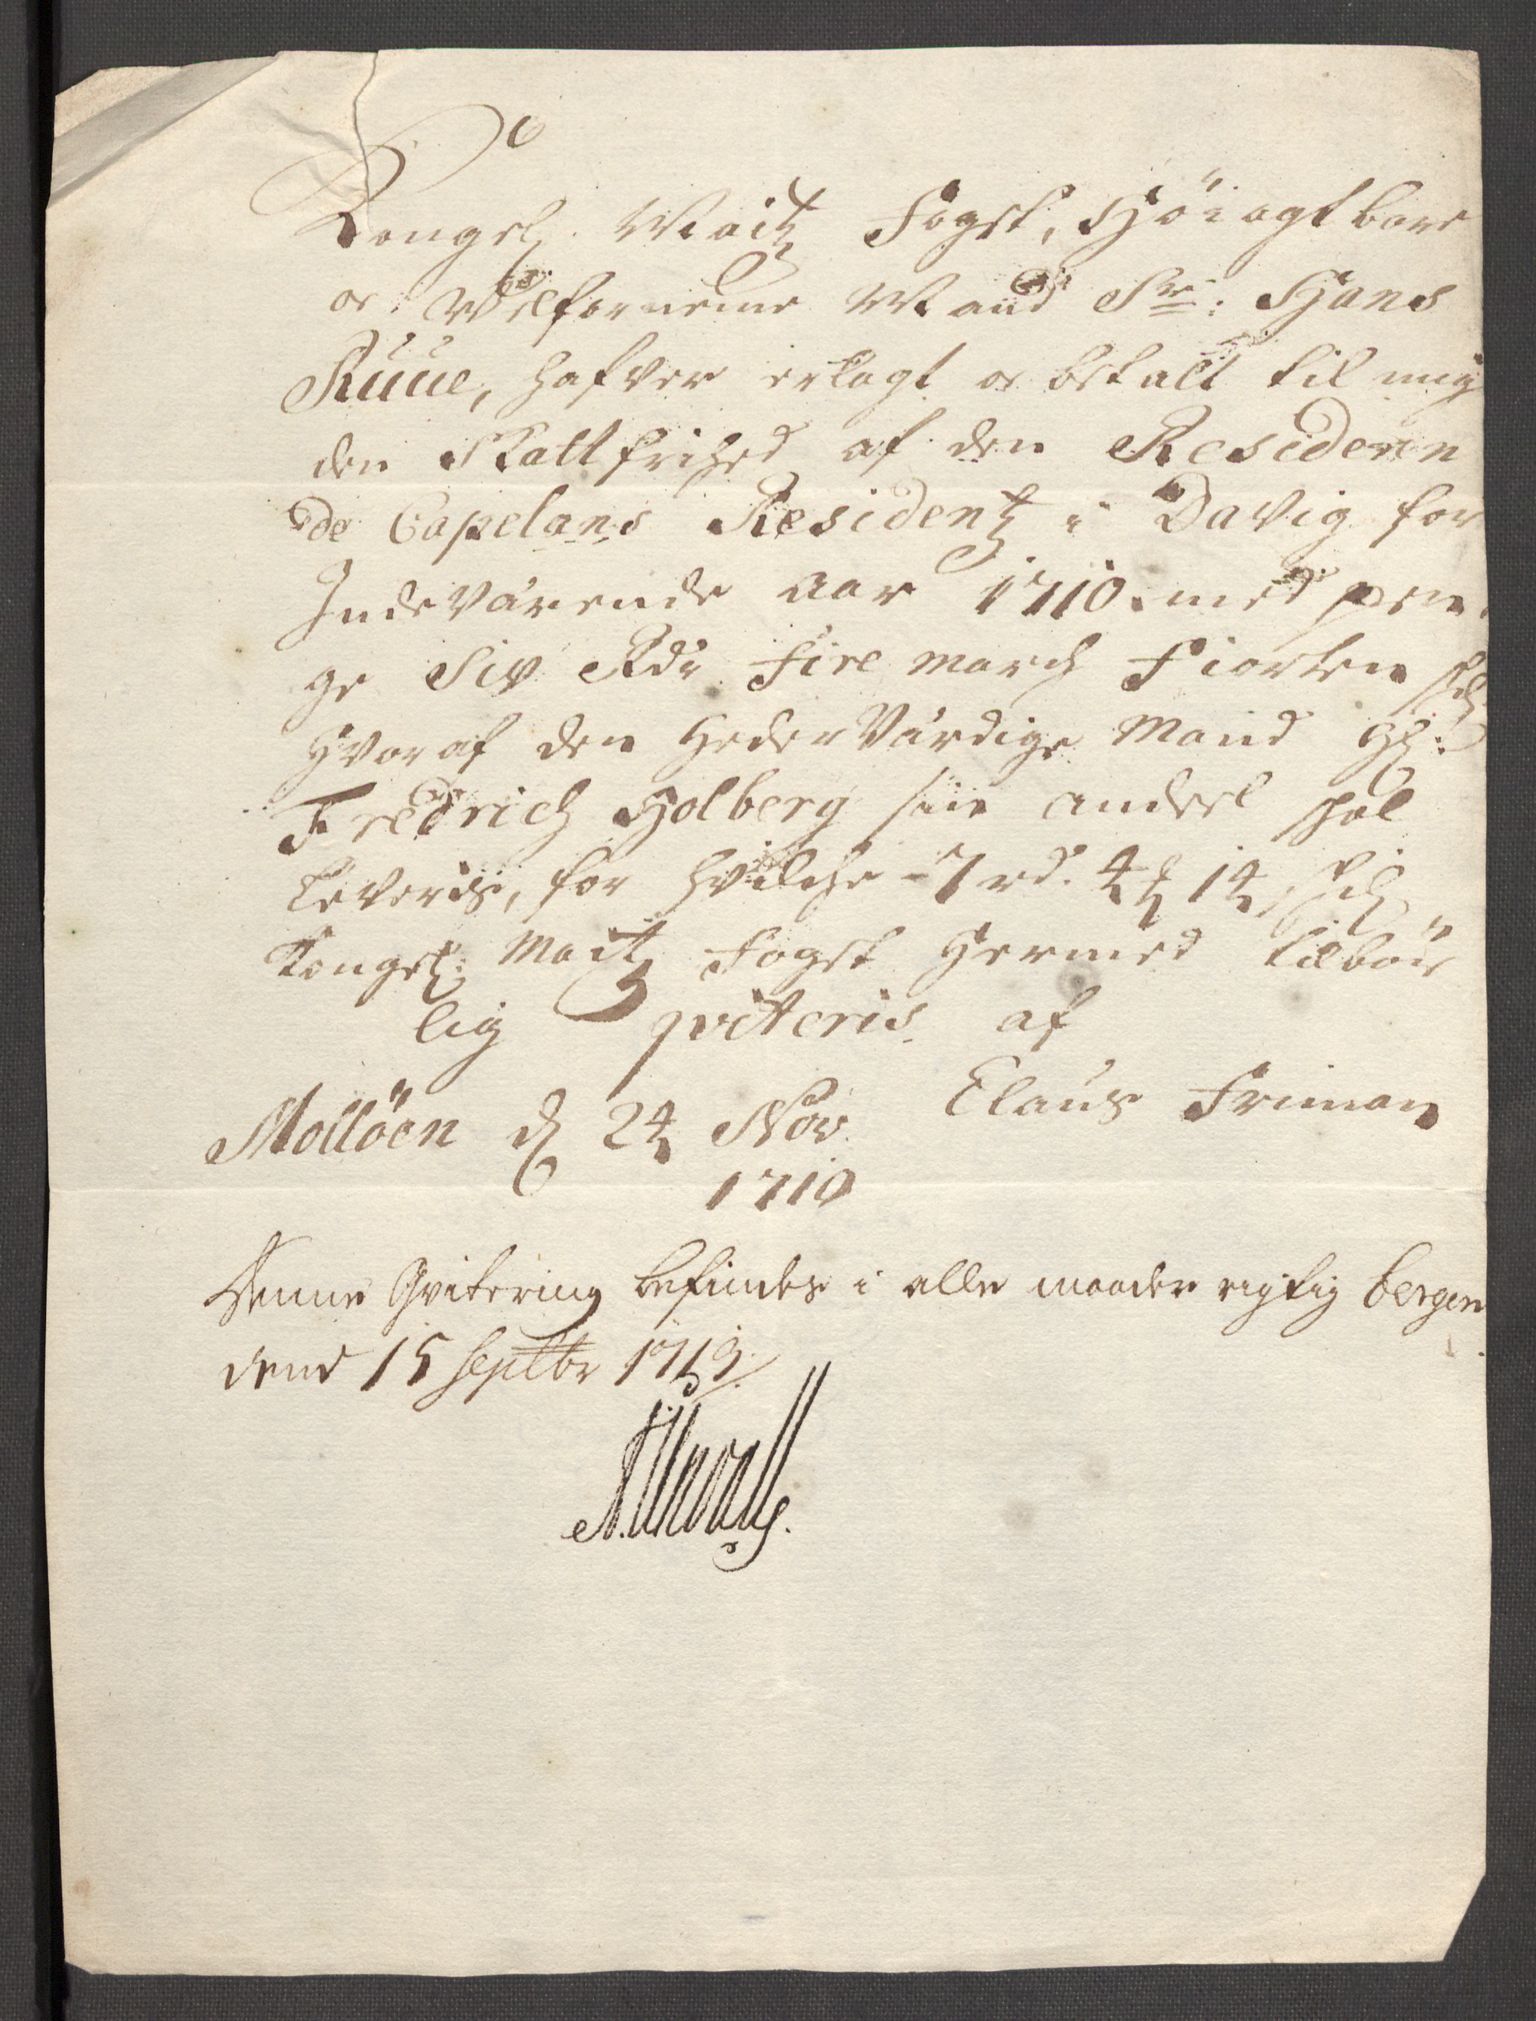 Kongel Maitz Fogct, Höiagtbare
oc Velforneme Mand Sr: Hans
Ruue, hafver erlagt oc betalt til mig
den Skattfrihed af den Residern
de Capelans Residentz i Davig for
Indeværende aar 1710 med pen
ge Siv Rdr Fire march Fiorten sch
hvoraf den Hedervärdige Mand Hr:
Fredrich Holberg sin andeel skal
leveris, for hvilche 7 rd. 4 ꝩ 14 sch
Kongel: Maitz Fogct hermed tilbör
lig qviteris af
Claus Friman
Mollöen d 24 Nov
1710
Denne Qvitering befindes i alle maader rigtig bergen
dend 15 Septbr 1713